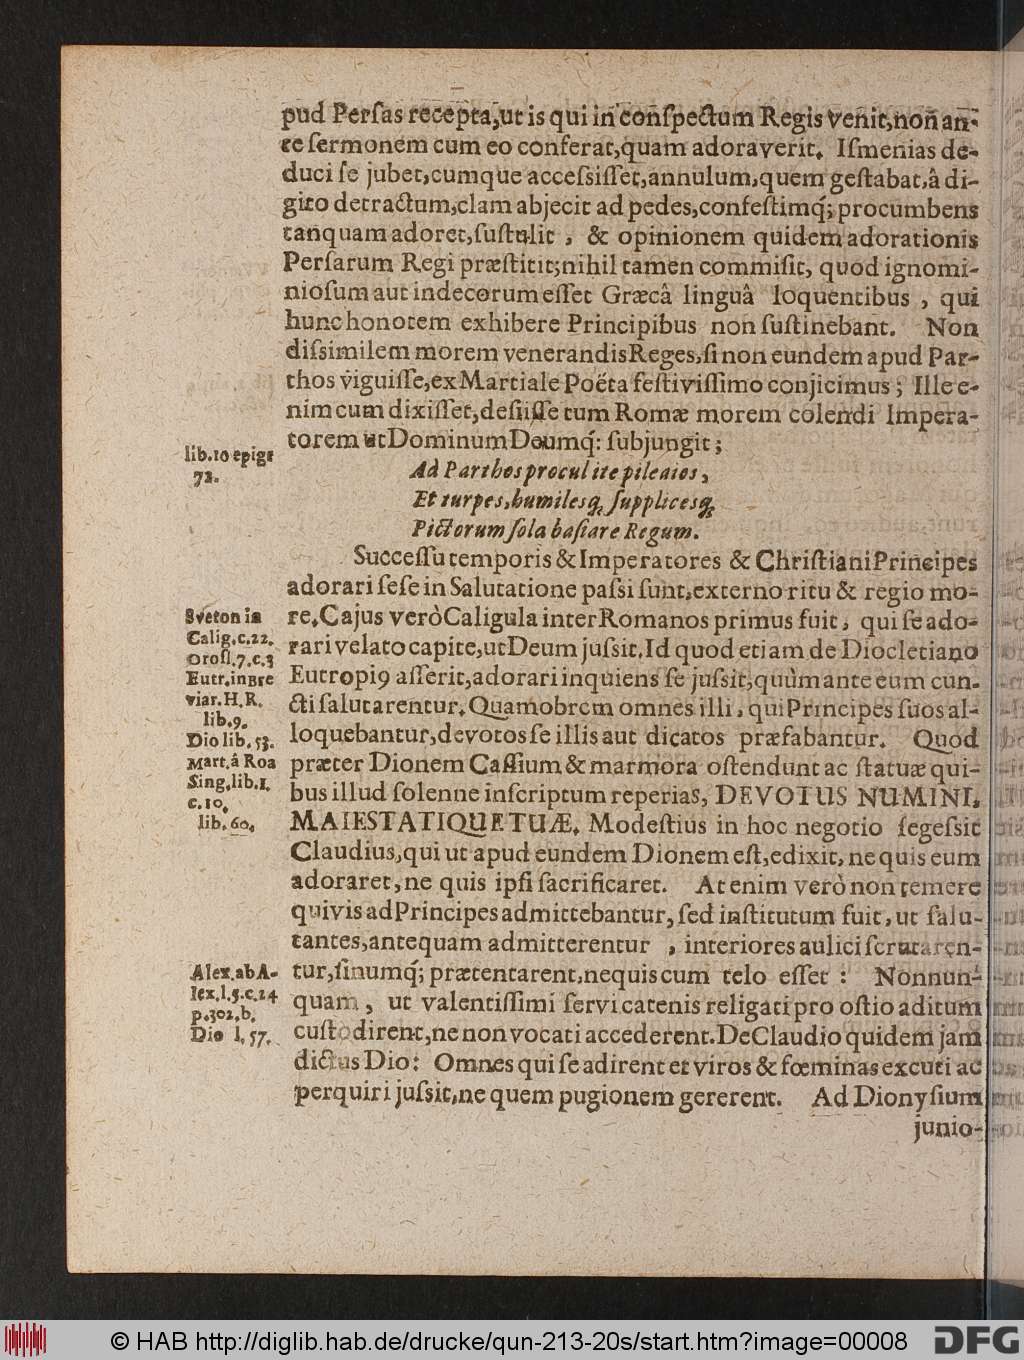 pud Perſas recepta, ut is qui in conſpectum Regis venit, non an-
te ſermonem cum eo conferat, quam adoraverit. Iſmenias de-
duci ſe jubet, cumque acceſsiſſet, annulum, quem geſtabat, â di-
gito detractum, clam abjecit ad pedes, confeſtimq́; procumbens
tanquam adoret, ſuſtulit, & opinionem quidem adorationis
Perſarum Regi præſtitit; nihil tamen commiſit, quod ignomi-
nioſum aut indecorum eſſet Græcâ linguâ loquentibus, qui
hunc honotem exhibere Principibus non ſuſtinebant. Non
diſsimilem morem venerandis Reges, ſi non eundem apud Par-
thos viguiſſe, ex Martiale Poëta feſtiviſſimo conjicimus; Ille e-
nim cum dixiſſet, deſiiſſe tum Romæ morem colendi Impera-
torem ut Dominum Deumq́: ſubjungit;
lib. 10 epigr
72.
Ad Parthos procul ite pileatos,
Et turpes, humilesq́; ſupplicesq́;
Pictorum ſola baſiare Regum.
Succeſſu temporis & Imperatores & Chriſtiani Principes
adorari ſeſe in Salutatione paſsi ſunt, externo ritu & regio mo-
re. Cajus verò Caligula inter Romanos primus fuit, qui ſe ado-
rari velato capite, ut Deum juſsit. Id quod etiam de Diocletiano
Eutropi9 aſſerit, adorari inquiens ſe juſsit, quùm ante eum cun-
cti ſalutarentur. Quamobrem omnes illi, qui Principes ſuos al-
loquebantur, devotos ſe illis aut dicatos præfabantur. Quod
præter Dionem Caſſium & marmora oſtendunt ac ſtatuæ qui-
bus illud ſolenne inſcriptum reperias, DEVOTUS NUMINI,
MAIESTATIQUE TUÆ. Modeſtius in hoc negotio ſegeſsit
Claudius, qui ut apud eundem Dionem eſt, edixit, ne quis eum
adoraret, ne quis ipſi ſacrificaret. At enim verò non temere
quivis ad Principes admittebantur, ſed inſtitutum fuit, ut ſalu-
tantes, antequam admitterentur, interiores aulici ſcrutaren-
tur, ſinumq́; prætentarent, ne quis cum telo eſſet: Nonnun-
quam, ut valentiſſimi ſervi catenis religati pro oſtio aditum
cuſtodirent, ne non vocati accederent. De Claudio quidem jam
dictus Dio: Omnes qui ſe adirent et viros & fœminas excuti ac
perquiri juſsit, ne quem pugionem gererent. Ad Dionyſium
junio-
Sveton in
Calig. c. 22.
Oroſ l. 7. c. 3
Eutr. in Bre
viar. H. R.
lib. 9.
Dio lib. 53.
Mart. â Roa
Sing. lib. 1.
c. 10.
lib. 60.
Alex. ab A-
lex. l. 5. c. 24
p. 302. b.
Dio l. 57.
© HAB http://diglib.hab.de/drucke/qun-213-20s/start.htm?image=00008
DFG